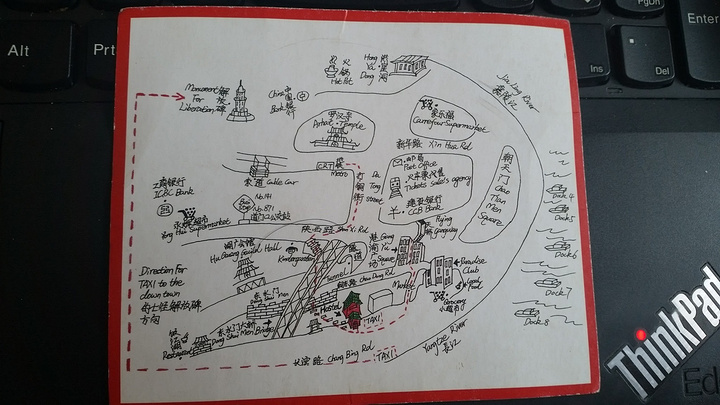 Alt
Prt
Ins
Del
Enter
火锅
Hot Pot
Hong Ya Dong
洪崖洞
Monument For Liberation
解放碑
China Bank
中国银行
Jia Ling River
嘉陵江
罗汉寺
Arhat Temple
家乐福
Carrefour Supermarket
新华路 Xin Hua Rd
CRT
Metro
索道 Cable Car
Da Tong Street
邮局
Post Office
火车票代售
Tickets Sale's agency
建设银行
CCB Bank
朝天门
Chao Tian Men Square
工商银行
ICBC Bank
永辉超市
Yong Hui Supermarket
Bus Stop
No.141
No.871
陕西路 Shan Xi Rd
湖广会馆
Hu Guang Guild Hall
Kindergarten
Tunnel
Chao Dong Rd
Market
Paradise Club
Grocery
小超市
Dock 4
Dock 5
Dock 6
Dock 7
Dock 8
Direction For TAXI to the down town
的士往解放碑方向
Hostel
TAXI
东水门大桥
Dong Shui Men Bridge
Restaurant
长滨路 Chang Bing Rd
TAXI
Yangtze River
长江
ThinkPad
Ed